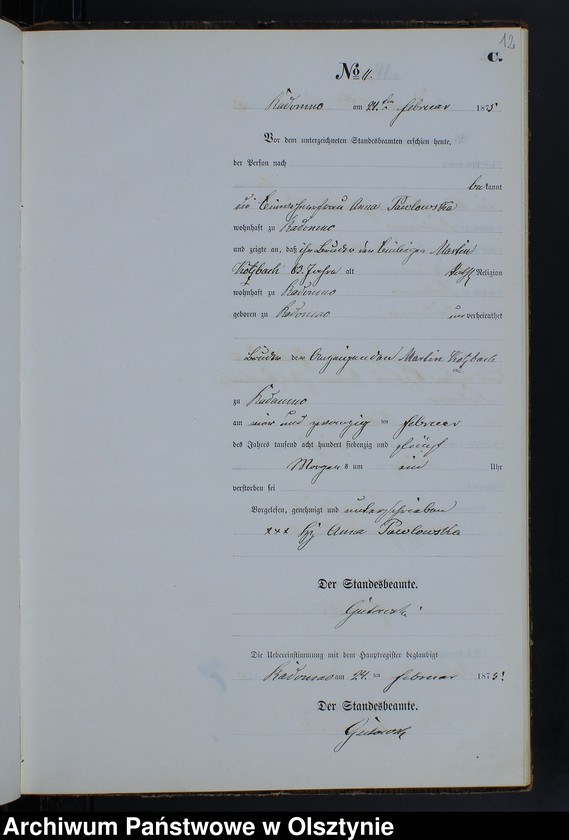 12
C.
No 11.
Radomno am 24. ten Februar 1875
Vor dem unterzeichneten Standesbeamten erschien heute,
der Person nach
bekannt
die Einwohnerfrau Anna Pawlowska
wohnhaft zu Radomno
und zeigte an, daß ihr Bruder der Martin
Kotzbach 63 Jahre alt kath. Religion
wohnhaft zu Radomno
geboren zu Radomno unverheirathet
Bruder der Anzeigenden Martin Kotzbach
zu Radomno
am vier und zwanzig ten Februar
des Jahres tausend acht hundert siebenzig und fünf
Morgens um ein Uhr
verstorben sei
Vorgelesen, genehmigt und unterschrieben
xxx Anna Pawlowska
Der Standesbeamte.
Die Uebereinstimmung mit dem Hauptregister beglaubigt
Radomno am 24. ten Februar 1875
Der Standesbeamte.
Archiwum Państwowe w Olsztynie